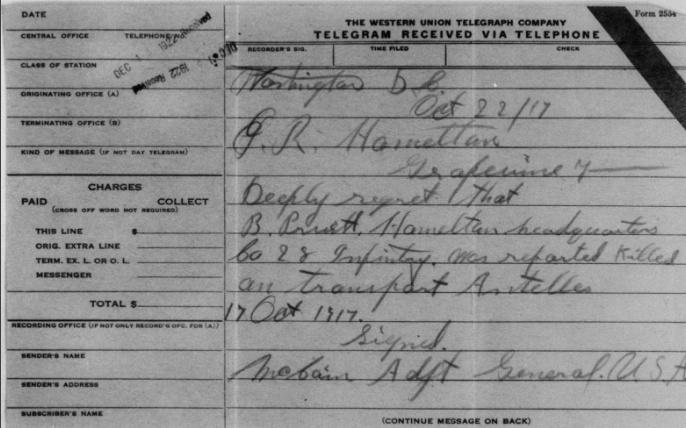 Form 2554
THE WESTERN UNION TELEGRAPH COMPANY
TELEGRAM RECEIVED VIA TELEPHONE
RECORDER'S SIG. TIME FILED CHECK
DATE
CENTRAL OFFICE TELEPHONE
DEC 1 1922 Received
1922 Received
CLASS OF STATION
ORIGINATING OFFICE (A)
TERMINATING OFFICE (B)
KIND OF MESSAGE (IF NOT DAY TELEGRAM)
CHARGES
PAID COLLECT
(CROSS OFF WORD NOT REQUIRED)
THIS LINE $
ORIG. EXTRA LINE
TERM. EX. L. OR O. L.
MESSENGER
TOTAL $
RECORDING OFFICE (IF NOT ONLY RECORD'G OFC. FOR (A))
SENDER'S NAME
SENDER'S ADDRESS
SUBSCRIBER'S NAME
Washington D C
Oct 22/17
G. R. Hameltan
Grapevine
Deeply regret that
B. Pruett. Hameltan headquarters
Co 28 Infintry. was reported Killed
on transport Antelles
17 Oct 1917.
Signed.
McCain Adjt General. U.S.A
(CONTINUE MESSAGE ON BACK)